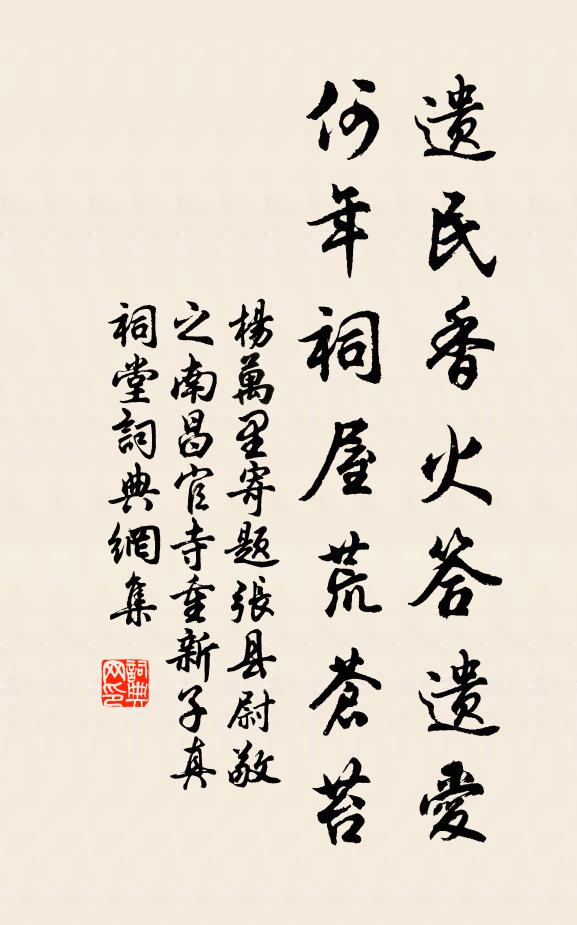 遗民香火答遗愛
何年祠屋荒蒼苔
楊萬里寄题張县尉敬
之南昌官寺重新子真
祠堂詞典網集
詞典网印